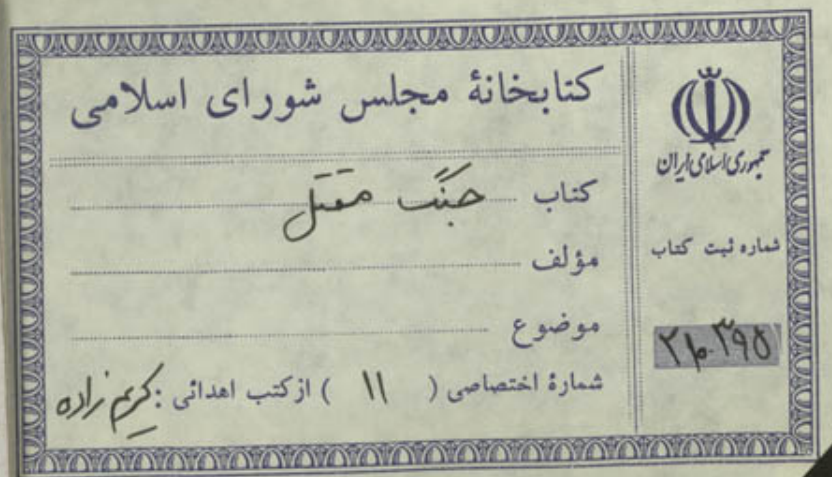 کتابخانهٔ مجلس شورای اسلامی
کتاب جنگ مقتل
مؤلف
موضوع
شمارهٔ اختصاصی ( ۱۱ ) از کتب اهدائی : کریم زاده
جمهوری اسلامی ایران
شماره ثبت کتاب